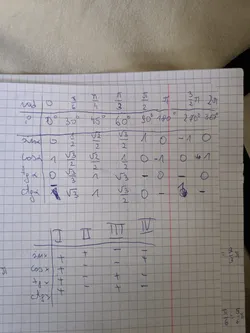 rad 0 π/6 π/4 π/3 π/2 π 3/2π 2π
° 0° 30° 45° 60° 90° 180° 270° 360°
sinx 0 1/2 √2/2 √3/2 1 0 -1 0
cosx 1 √3/2 √2/2 1/2 0 -1 0 +1
tgx 0 √3/3 1 √3 - 0 - 0
ctgx - √3 1 √3/3 0 - -
I II III IV
sinx + + - -
cosx + - - +
tgx + - + -
ctgx + - + -